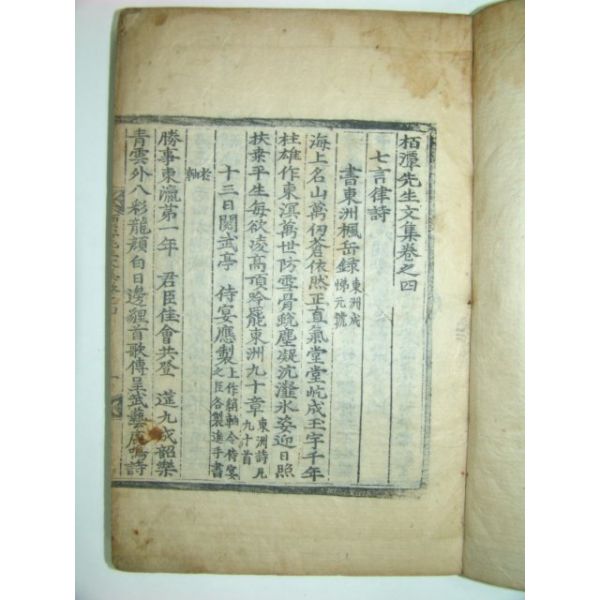 栢潭先生文集卷之四
七言律詩
書東洲楓岳錄 東洲成悌元號
海上名山萬仞蒼依然正直氣堂堂屹成玉宇千年
柱雄作東溟萬世防雪骨銳塵凝沆瀣氷姿迎日照
扶桒平生每欲凌高頂吟罷東洲九十章 東洲詩凡九十首
十三日閱武亭 侍宴應製 上作 軸令侍宴之臣各製進手書
老軸
勝事東瀛第一年 君臣佳會共登 筵九成韶樂
青雲外八彩龍顔白日邊貍首歌傳呈武藝鹿鳴詩